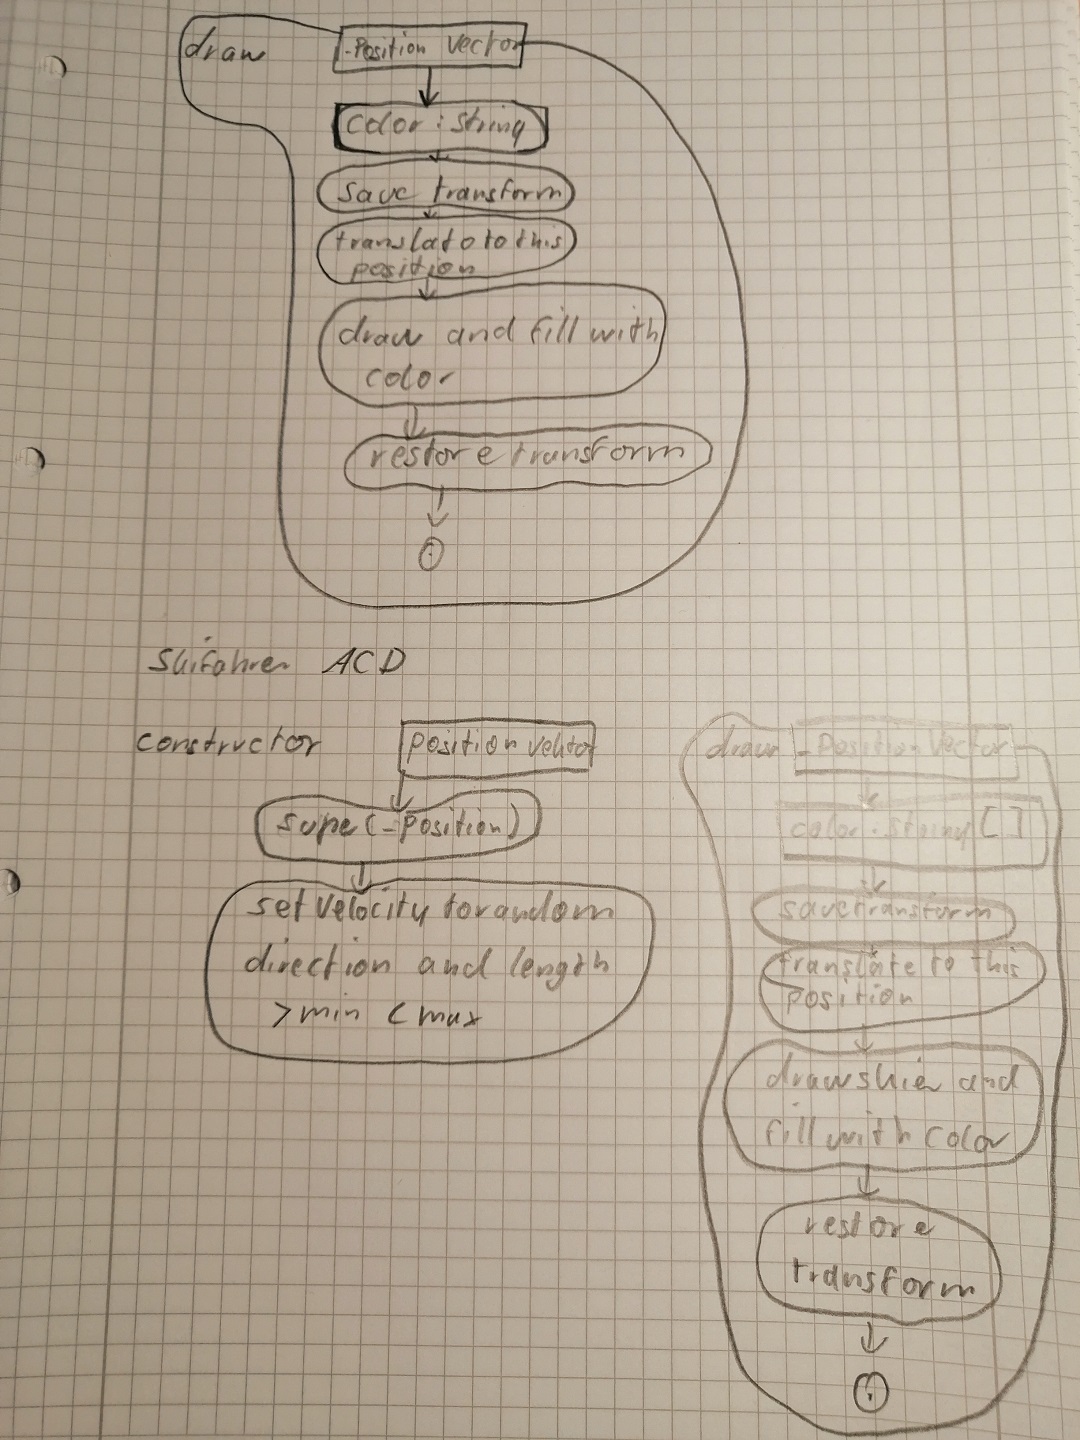 draw
-Position Vector
color: string
save transform
translate to this
position
draw and fill with
color
restore transform
Skifahrer ACD
constructor
position vektor
supe(-position)
set velocity to random
direction and length
>min <max
draw
-Position Vector
color: string []
save transform
translate to this
position
draw skier and
fill with color
restore
transform